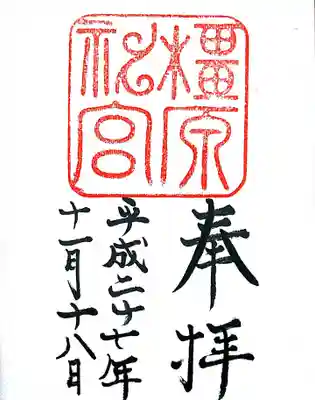 橿原
神宮
奉拝
平成二十七年
十一月十八日